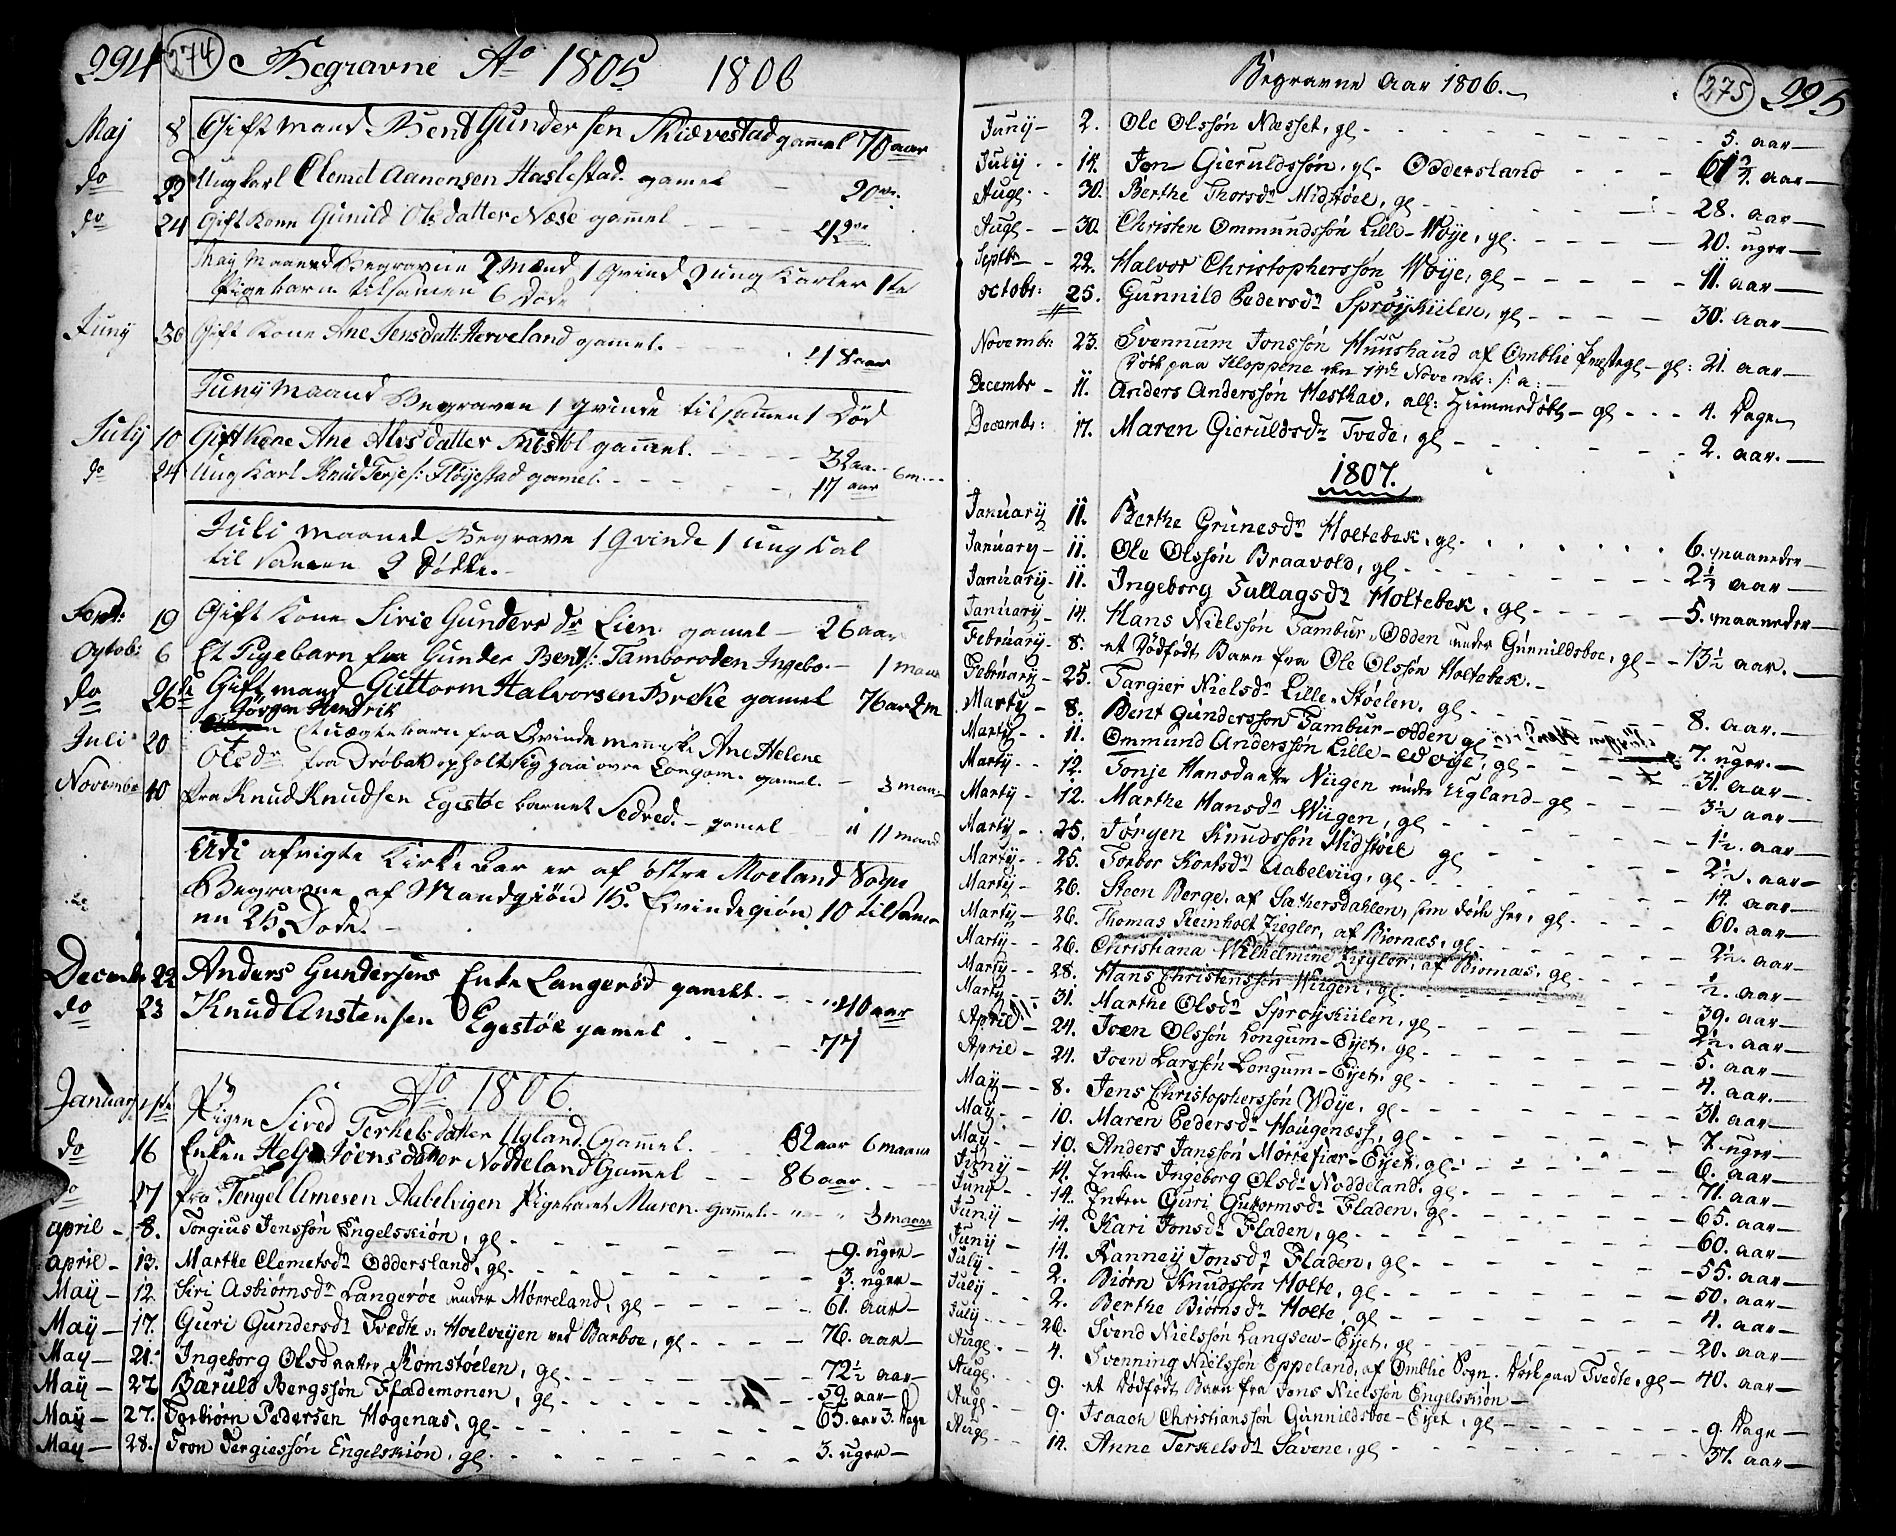 294 274 Begravne Ao 1805 1806
Maj 8 Gift mand Bend Gundersen Skiævestad gammel 70 aar
do 22 Ung karl Clemet Aanensen Haslestad gamel - 20 aar
do 24 Gift Kone Gunild Olsdatter Næse gammel - - - -
May Maaned Begravne 2 Mænd 1 Qvinde 2 ung Karler 1
Pigebarn tilsamen 6 Døde
Juny 30 Gift Kone Ane Jensdatt: Herveland gamel. - - 48 aar
Juny Maaned Begraven 1 qvinde tilsammen 1 Død
July 10 Gift Kone Ane Alvsdatter gammel. - - - - 32 aar 6 m
do 24 Ung Karl Knud Terjes: Fløyestad gamel. - - - - 17 aar
Juli maaned Begrave 1 Qvinde 1 ung Kal
til samen 2 Dødde.
Sept: 19 Gift Kone Sirie Gunders dr Lien gamel - 26 aar
Octob: 6 Et Pigebarn fra Gunder Bents: Tamboroden Ingebo. - 1 maan
do 26de Gift mand Guttorm Halvorsen Breke gamel 76 aar 2 m
Jørgen Hendrik
Juli 20 Et uægte barn fra Qvinde menniske Ane Helene
Olsdr fra Drøbak opholt sig paa øvre Longom. gamel. - 3 maan
Novembe 10 fra Knud Knudsen Egestøe barnet Sedved. - gamel - 11 maand
Udi afvigte Kirke Aar er af østre Moeland Sogn
Begravne af Mandkiøn 15. Qvindekiøn 10 tilsam
en 25 Døde. -
Decembr 22 Anders Gundersens Enke Langerød gamelt. - - 40 aar
do 23 Knud Anstensen Egestøe gamel - - 77
Ao 1806.
January 1ste Pigen Sired Terkelsdatter Ugland Gammel. 62 aar 6 maane
do 16 Enken Helje Joensdatter Noddeland Gammel - - 86 aar
do 17 fra Tengel Amesen Aabelvigen Pigebarnet Maren gammel - 3 maane
april - 8. Torgius Jenssøn Engelskiøn, gl - - - 9. uger -
april - 13. Marthe Clemetsdr Oddersland, gl - - - 3. uger -
May - 12. Siri Asbiørnsdr Langerøe under Mørreland, gl - - - 61. aar -
May - 17. Guri Gundersdr Tvedte v. Hoelveyen ved Barboe, gl - - - 76. aar -
May - 21. Ingeborg Olsdaatter Romstøelen, gl - - - 72½ aar -
May - 27. Bæruld Bergssøn Flademonen, gl - - - 59. aar -
May - 27. Torbiørn Pedersen Hogenæs, gl - - - 65. aar 3. Dage
May - 28. Tron Tergiessøn Engelskiøn, gl - - - 3. uger -
Begravne Aar 1806. - 275 295
Juny - 2. Ole Olssøn Næsset, gl - - - 5. aar -
July - 14. Jon Gieruldssøn, gl - Oddersland - - - 61 aar -
Augs. - 30. Berthe Thorsdr Midstøel, gl - - - 28. aar -
Augs - - 30. Christen Ommundssøn Lille-Wøye, gl - - - 20. uger -
Septbr - 22. Halvor Christophersson Wøye, gl - - - 11. aar -
octobr: 25. Gunnild Pedersdr Sprøykiilen, gl - - - 30. aar -
Novembr: 23. Svennum Jonssøn Huushaud af Omblie Prestegl - gl: 21. aar -
Død paa Kloppene den 14de Novembr: s: a: -
Decembr - 11. Anders Anderssøn Hesthav, all: Himmerdøbt - gl - - - 4. Dage
Decembr: 17. Maren Gieruldsdr Tvede, gl - - - 2. aar. -
1807.
January 11. Berthe Grunesdr Holtebek, gl. - - - 6. maaneder
January - 11. Ole Olssøn Braavold, gl - - - 2½ aar -
January - 11. Ingeborg Tullagsdr Holtebek, gl - - - 5. maaneder
January - 14. Hans Nielssøn Tambur-Odden under Gunnildsboe, gl - - 13½ aar. -
February - 8. et Dødfødt Barn fra Ole Olssøn Holtebek. -
February - 25. Targier Nielsdr Lille-Støelen, gl - - - 8. aar. -
Marty - 8. Bent Gunderssøn Tambur-Odden gl - - - 7. uger. -
Marty - 11. Ommund Anderssøn Lille-Wøye, gl - - - 31. aar -
Marty - 12. Tonje Hansdaatter Wiigen under Ugland - gl - - - 3½ aar -
Marty - 12. Marthe Hansdr Wiigen, gl - - - 1½. aar -
Marty - 25. Jørgen Knudssøn Midstøel gl - - - 2½. aar -
Marty - 25. Torbor Kortsdr Aabelviig, gl - - - 14. aar -
Marty - 26. Steen Berge, af Sathersdahlen, som døde her, gl - - - 60. aar -
Marty - 26. Thomas Reinholt Ziegler, af Biornæs, gl - - - 2½. aar -
Marty - 26. Christiana Wilhelmine Ziegler, af Biornæs, gl - - - ½. aar -
Marty - 28. Hans Christenssøn Wiigen, gl - - - 39. aar -
Marty - 31. Marthe Olsdr Sprøyskiilen, gl - - - 2½. aar -
April - 24. Joen Olssøn Longum-Eyet, gl - - - 5. aar -
April - 24. Joen Larssøn Longum-Eyet, gl - - - 4. aar. -
May - 8. Jens Christophersson Wøye, gl - - - 31. aar -
May - 10. Maren Pedersdr Haugenæss, gl - - - 7. uger -
May - 10. Anders Janssøn Mørrefiær-Eyet, gl - - - 6. aar -
Juny - 14. Enken Ingeborg Olsdr Noddeland, gl - - - 71. aar -
Juny - 14. Enken Guri Guttormsdr Fladen, gl - - - 65. aar -
Juny - 14. Kari Jonsdr Fladen, gl - - - 60. aar -
Juny - 14. Ranney Jonsdr Fladen, gl - - - 55. aar -
July - 2. Biørn Knudssøn Holte, gl - - - 50. aar -
July - 2. Berthe Biørnsdr Holte, gl - - - 4. aar -
July - 26. Svend Nielssøn Langsew-Eyet, gl - - - 20. aar -
Augs. - 4. Svenning Nielssøn Eppeland, af Omblie Sogn. Død paa Tvedte, gl - 40. aar -
Augs - 9. et Dødfødt Barn fra Jens Nielssøn Engelskiøn -
Augs - 9. Isaach Christianssøn Gunnildsboe-Eyet, gl - - - 9. Dage -
Augs - 14. Anne Terkelsdr Savene, gl - - - 37. aar -